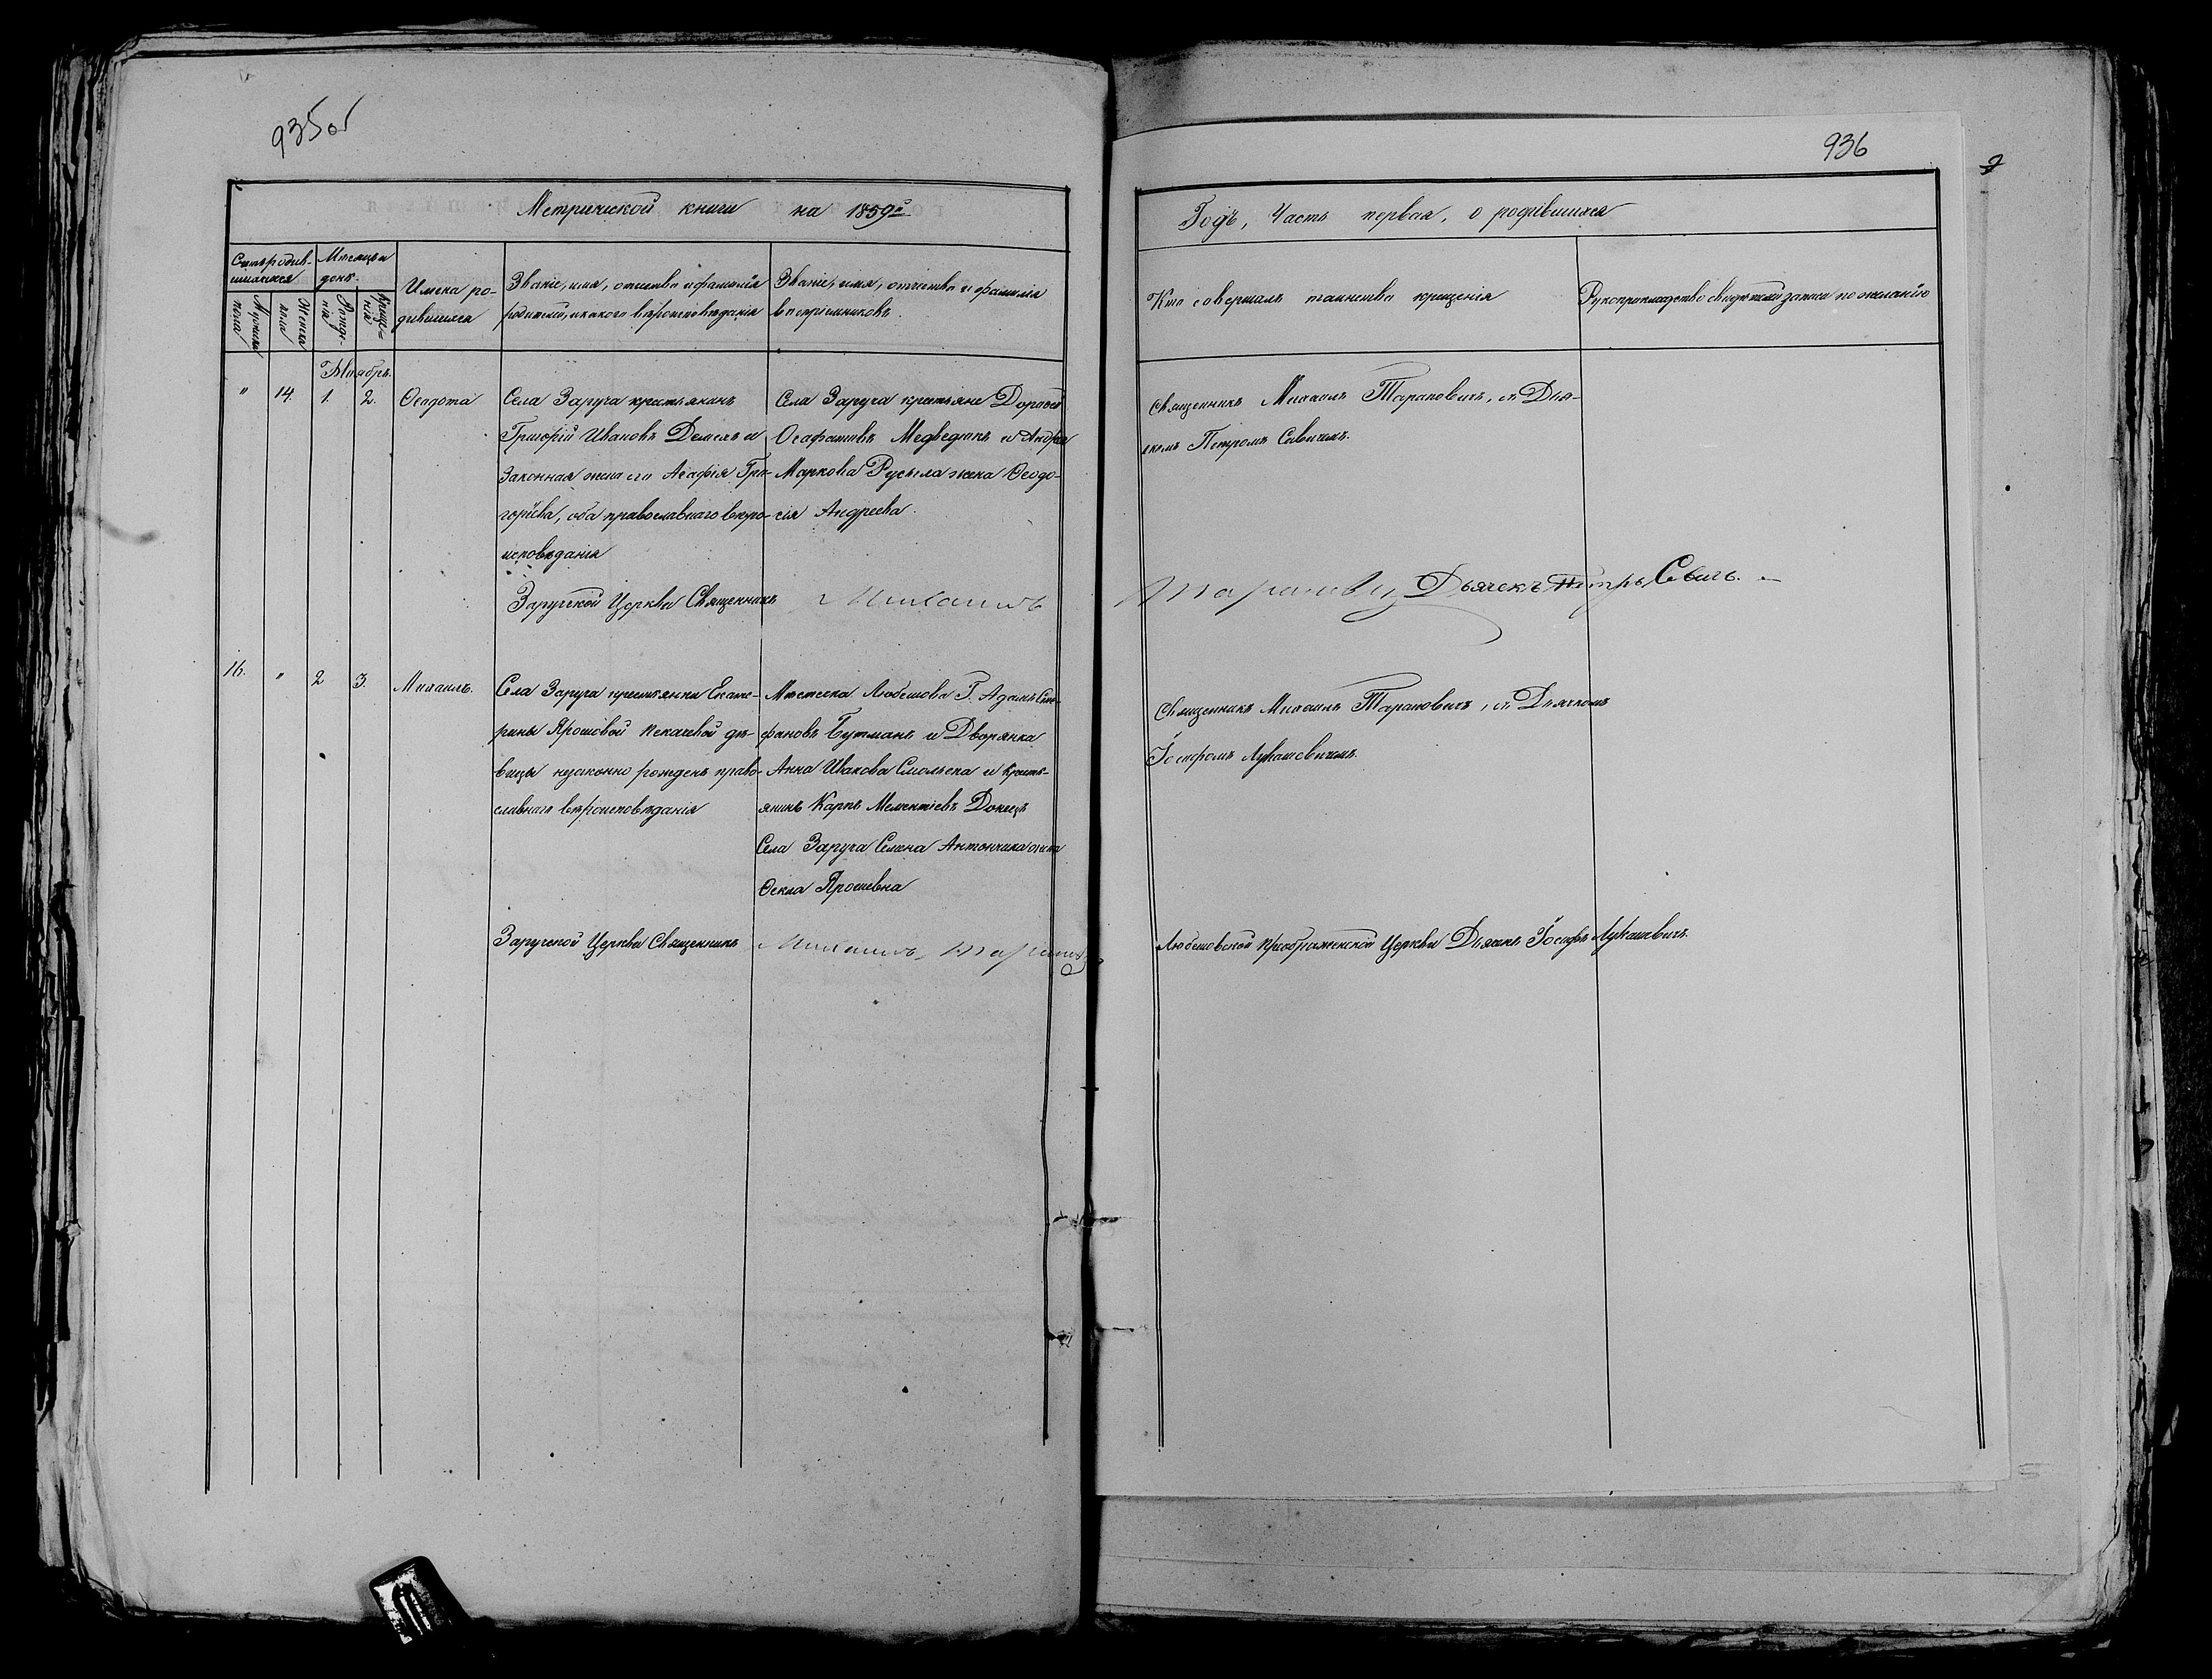 935об
936
Метрической книги на 1859й
Годъ, Часть первая, о родившихся
Счетъ родив-
шихся
Мѣсяцъ и
день
Мужеска
пола
Женска
пола
Рожде-
нія
Креще-
нія
Имена ро-
дившихся
Званіе, имя, отчество и фамилія
родителей, и какого вѣроисповѣданія
Званіе, имя, отчество и фамилія
воспріемниковъ.
Кто совершалъ таинство крещенія
Рукоприкладство свидѣтелей записи по желанію
Ноябрь.
" 14. 1. 2. Ѳеодота
Села Заруча крестьянинъ
Григорій Ивановъ Демехъ и
Законная жена его Агафія Гри-
горьева, оба православнаго вѣро-
исповѣданія
Села Заруча крестьяне Дорофей
Осафатовъ Медведюкъ и Андрея
Маркова Русила жена Ѳеодо-
сія Андреева.
Священникъ Михаилъ Тарановичъ, съ Дья-
комъ Петромъ Савичемъ.
Заручской Церкви Священникъ Михаилъ Тарановичъ Дьячекъ Петръ Савичъ.
16. " 2 3. Михаилъ.
Села Заруча крестьянки Екате-
рины Ярошовой дѣ-
вицы незаконно рожденъ право-
славнаго вѣроисповѣданія
Мѣстечка Любешова Г. Адамъ Сте-
фановъ Бутманъ и Дворянка
Анна Иванова Смольска и Кресть-
янинъ Карпъ Мементіевъ Донецъ
Села Заруча Семена Антончика жена
Ѳекла Ярошевна
Священникъ Михаилъ Тарановичъ, съ Дьячкомъ
Іосифомъ Лукашевичемъ.
Заручской Церкви Священникъ Михаилъ Тарановичъ
Любешовской Преображенской Церкви Дьякъ Іосифъ Лукашевичъ.